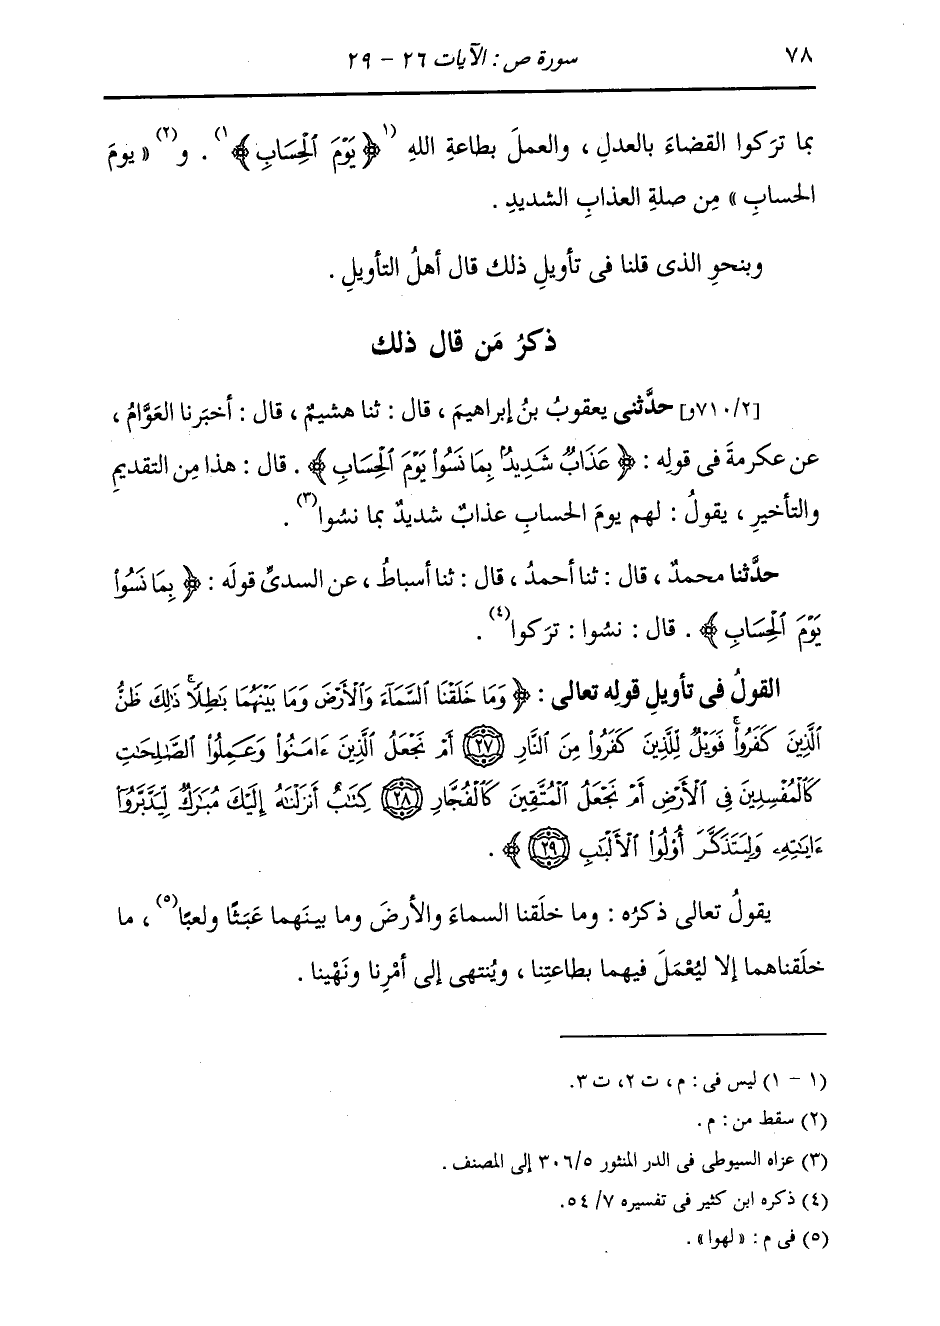 ٧٨ سورة ص : الآيات ٢٦ - ٢٩
بما ترَكوا القضاءَ بالعدلِ ، والعملَ بطاعةِ اللهِ (١﴿ يَوْمَ ٱلْحِسَابِ ﴾١) . و(٢) « يومَ
الحسابِ » مِن صلةِ العذابِ الشديدِ .
وبنحوِ الذى قلنا فى تأويلِ ذلك قال أهلُ التأويلِ .
ذكرُ مَن قال ذلك
[٧١٠/٢و] حدَّثنى يعقوبُ بنُ إبراهيمَ ، قال : ثنا هشيمٌ ، قال : أخبَرنا العَوَّامُ ،
عن عكرمةَ فى قولِه : ﴿ عَذَابٌ شَدِيدٌۢ بِمَا نَسُوا۟ يَوْمَ ٱلْحِسَابِ ﴾ . قال : هذا مِن التقديمِ
والتأخيرِ ، يقولُ : لهم يومَ الحسابِ عذابٌ شديدٌ بما نسُوا(٣) .
حدَّثنا محمدٌ ، قال : ثنا أحمدُ ، قال : ثنا أسباطُ ، عن السدىِّ قولَه : ﴿ بِمَا نَسُوا۟
يَوْمَ ٱلْحِسَابِ ﴾ . قال : نسُوا : ترَكوا(٤) .
القولُ فى تأويلِ قولِه تعالى : ﴿ وَمَا خَلَقْنَا ٱلسَّمَآءَ وَٱلْأَرْضَ وَمَا بَيْنَهُمَا بَٰطِلًاۚ ذَٰلِكَ ظَنُّ
ٱلَّذِينَ كَفَرُوا۟ۚ فَوَيْلٌ لِّلَّذِينَ كَفَرُوا۟ مِنَ ٱلنَّارِ ٢٧ أَمْ نَجْعَلُ ٱلَّذِينَ ءَامَنُوا۟ وَعَمِلُوا۟ ٱلصَّٰلِحَٰتِ
كَٱلْمُفْسِدِينَ فِى ٱلْأَرْضِ أَمْ نَجْعَلُ ٱلْمُتَّقِينَ كَٱلْفُجَّارِ ٢٨ كِتَٰبٌ أَنزَلْنَٰهُ إِلَيْكَ مُبَٰرَكٌ لِّيَدَّبَّرُوٓا۟
ءَايَٰتِهِۦ وَلِيَتَذَكَّرَ أُو۟لُوا۟ ٱلْأَلْبَٰبِ ٢٩ ﴾ .
يقولُ تعالى ذكرُه : وما خلَقنا السماءَ والأرضَ وما بينَهما عَبَثًا ولعبًا(٥) ، ما
خلَقناهما إلا ليُعْمَلَ فيهما بطاعتِنا ، ويُنتهى إلى أمْرِنا ونَهْيِنا .
(١ - ١) ليس فى : م ، ت ٢، ت ٣.
(٢) سقط من : م .
(٣) عزاه السيوطى فى الدر المنثور ٣٠٦/٥ إلى المصنف .
(٤) ذكره ابن كثير فى تفسيره ٧/ ٥٤.
(٥) فى م : « لهوا » .